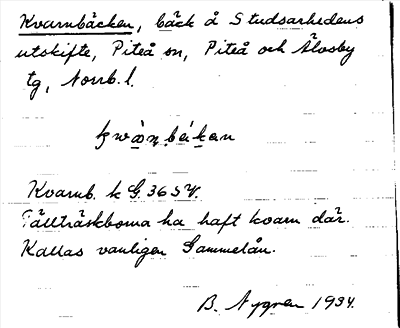 Kvarnbäcken, bäck å Studsarhedens
utskifte, Piteå sn, Piteå och Älvsby
tg, Norrb. l.
Kvarnb. k G. 365 V.
Fällträskborna ha haft kvarn där.
Kallas vanligen Gammelån.
B. Nygren 1934.